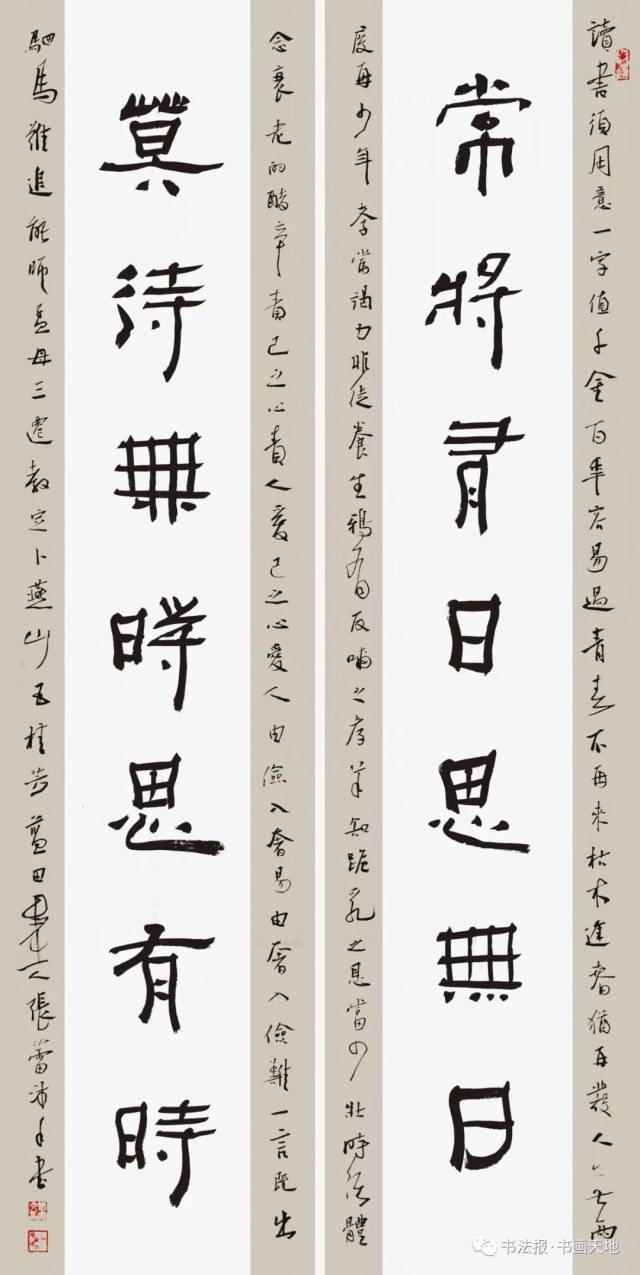 讀書須用意一字值千金百年容易過青春不再來枯木逢春猶再發人兩
常將有日思無日
度再少年孝當竭力非徒養生鴉有反哺之孝羊知跪乳之恩當少壯時須體
念衰老的酸辛責己之心責人愛己之心愛人由儉入奢易由奢入儉難一言既出
莫待無時思有時
駟馬難追能師孟母三遷教定卜燕山五桂芳藍田張蕾書
书法报·书画天地